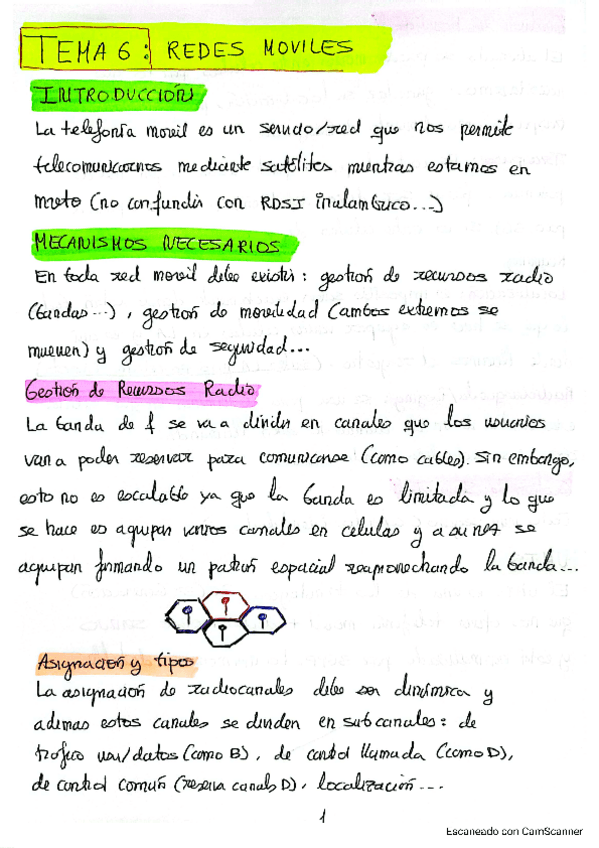 TEMA 6: REDES MOVILES
INTRODUCCIÓN
La telefonía movil es un servicio/red que nos permite
telecomunicarnos mediante satélites mientras estamos en
movto (no confundir con RDSI inalámbrico...)
MECANISMOS NECESARIOS
En toda red movil debe existir: gestión de recursos radio
(bandas...), gestión de movilidad (ambos extremos se
mueven) y gestión de seguridad...
Gestión de Recursos Radio
La banda de f se va a dividir en canales que los usuarios
van a poder reservar para comunicarse (como cables). Sin embargo,
esto no es escalable ya que la banda es limitada y lo que
se hace es agrupar varios canales en células y a su vez se
agrupan formando un patrón espacial reaprovechando la banda...
Asignación y tipos
La asignación de radiocanales debe ser dinámica y
ademas estos canales se dividen en subcanales: de
trafico voz/datos (como B), de control llamada (como D),
de control común (reserva canals D), localización...
1
Escaneado con CamScanner